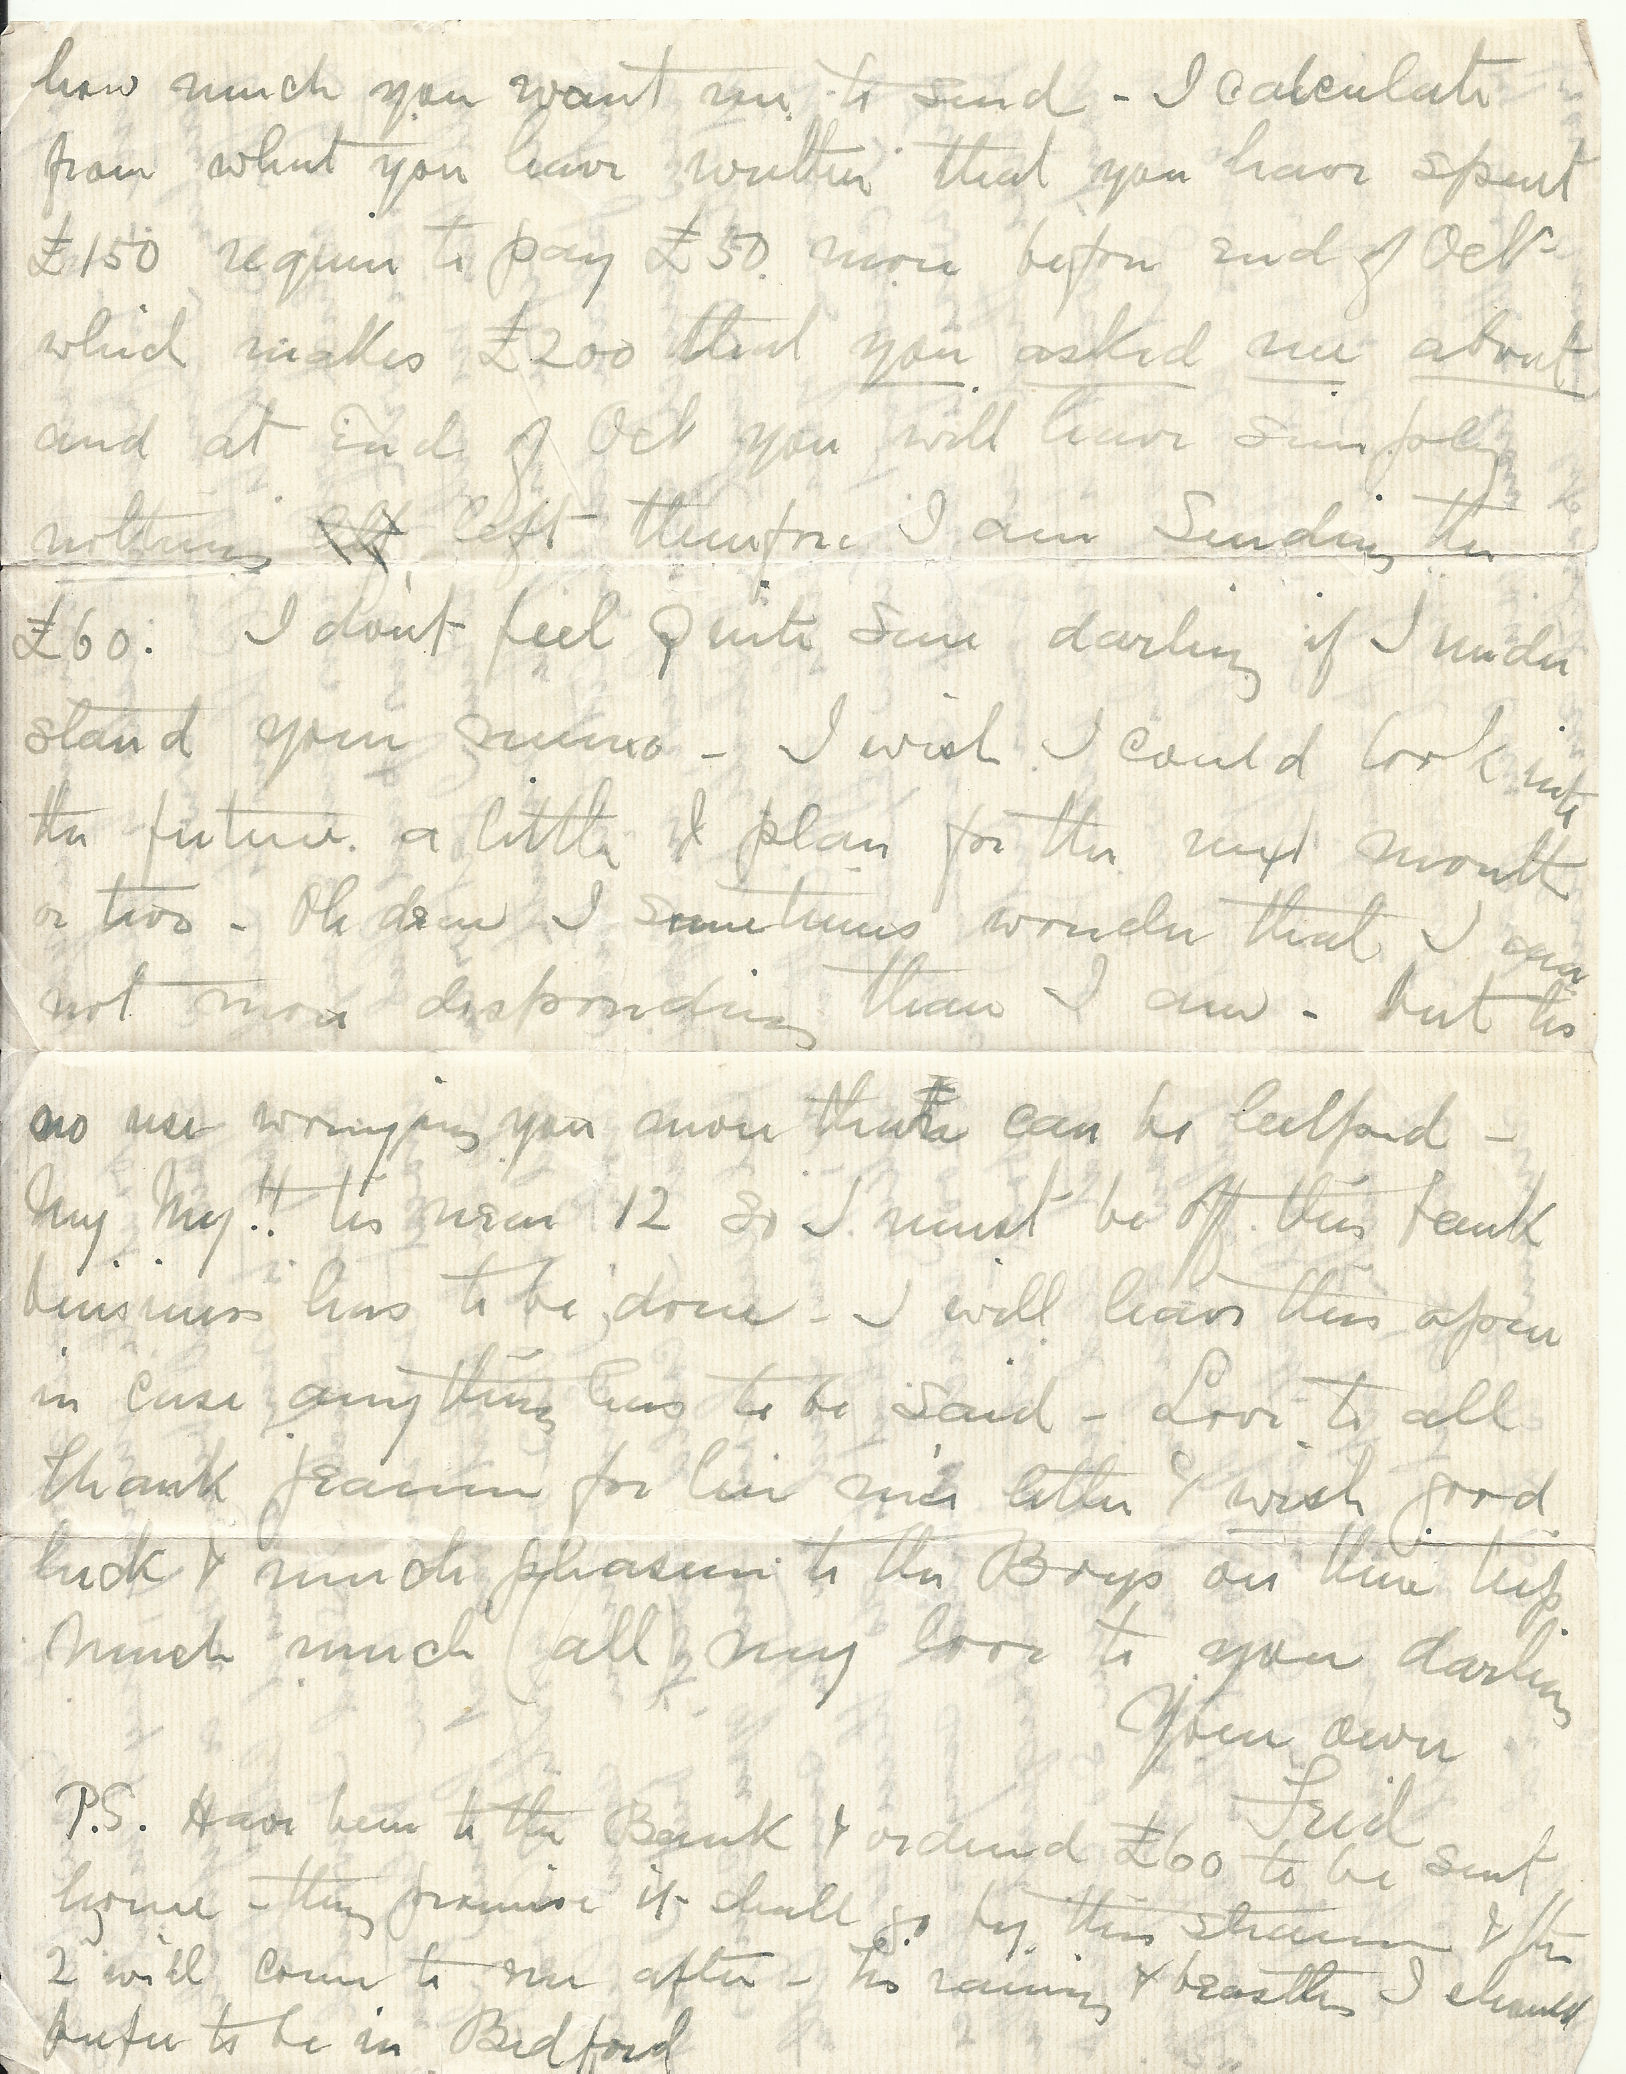 how much you want me to send - I calculate
from what you have written that you have spent
£150 require to pay £50 more before end of Oct
which makes £200 that you asked me about
and at End of Oct you will have simply
nothing left therefore I am Sending the
£60. I dont feel Quite Sure darling if I under
stand your - I wish I could look into
the future a little & plan for the next month
or two - Oh dear I sometimes wonder that I am
not more desponding than I am - but tis
no use you more than can be helped -
My My!! tis near 12 so I must be off this bank
business has to be done - I will leave this open
in case anything has to be said - Love to all
thank for nice letter & wish good
luck & much pleasure to the Boys on their trip
Much much (all) my love to you darling
Your own
Fred
P.S. Have been to the Bank & ordered £60 to be sent
home - they promise it shall go by this steamer & the
2 will come to me after - tis raining & beastly I should
prefer to be in Bedford